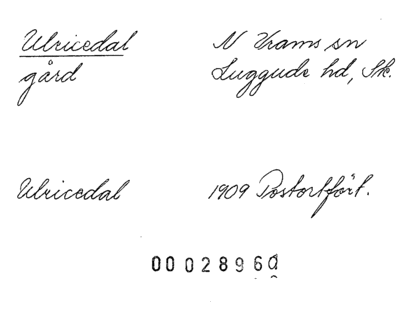 Ulricedal N Vrams sn
gård Luggude hd, Sk.
Ulricedal 1909 Postortfört.
00028960